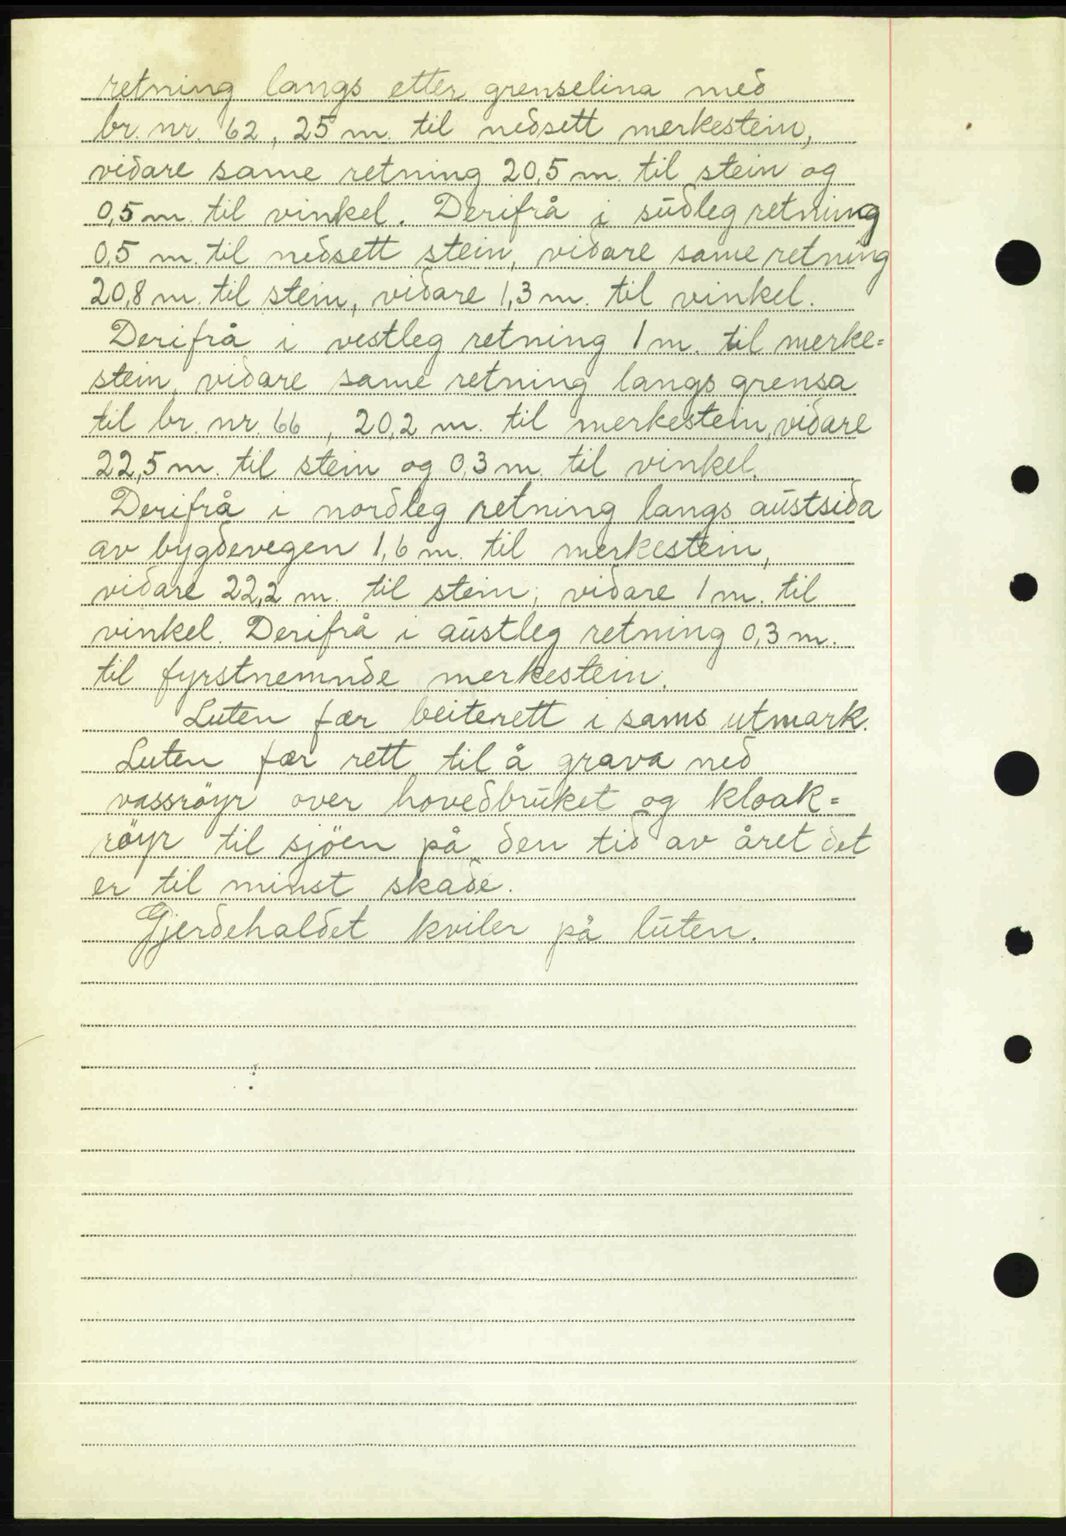 retning langs etter grenselina med
br. nr. 62, 25 m. til nedsett merkestein,
vidare same retning 20,5 m. til stein og
0,5 m. til vinkel. Derifrå i sudleg retning
0,5 m. til nedsett stein, vidare same retning
20,8 m. til stein, vidare 1,3 m. til vinkel.
Derifrå i vestleg retning 1 m. til merke=
stein, vidare same retning langs grensa
til br. nr. 66, 20,2 m. til merkestein, vidare
22,5 m. til stein og 0,3 m. til vinkel.
Derifrå i nordleg retning langs austsida
av bygdevegen 1,6 m. til merkestein,
vidare 22,2 m. til stein, vidare 1 m. til
vinkel. Derifrå i austleg retning 0,3 m.
til fyrstnemnde merkestein.
Luten fær beiterett i sams utmark.
Luten fær rett til å grava ned
vassröyr over hovedbruket og kloak=
röyr til sjöen på den tid av året det
er til minst skade.
Gjerdehaldet kviler på luten.